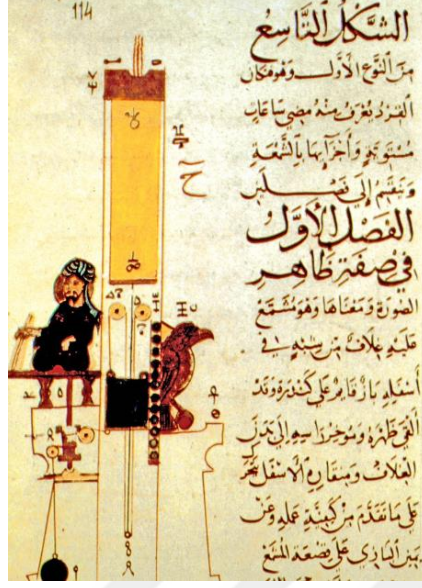 114
الشكل التاسع
من النوع الأول وهو فنكان
القرد يعرف منه مضي ساعات
مستوية وأجزائها بالشمعة
وينقسم إلى فصلين
الفصل الأول
في صفة ظاهر
الصورة ومعناها وهو
عليه غلاف من شبه في
أسفله باز قائم على كندرة وقد
ألقى ظهره ومؤخر رأسه إلى
الغلاف ومنقاره الأسفل
على ما تقدم من كيفية عمله وعن
يمين البازي على قصعة الشمع